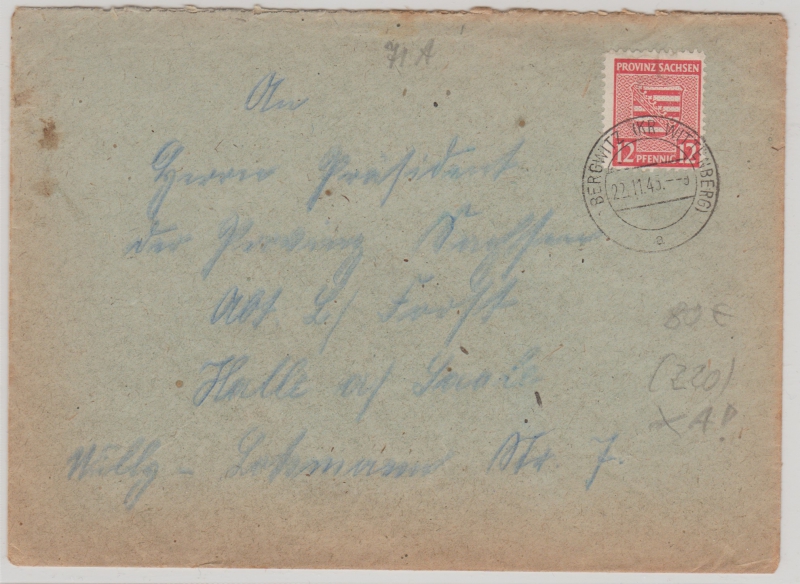 71 A
PROVINZ SACHSEN
12 PFENNIG 12
BERGWITZ (KR WITTENBERG)
22.11.45.--9
a
An
Herrn Präsident
der Provinz Sachsen
Abt L/ Forst
Halle a/ Saale
Willy - Lohmann Str 7.
80 €
(Z20)
x A!